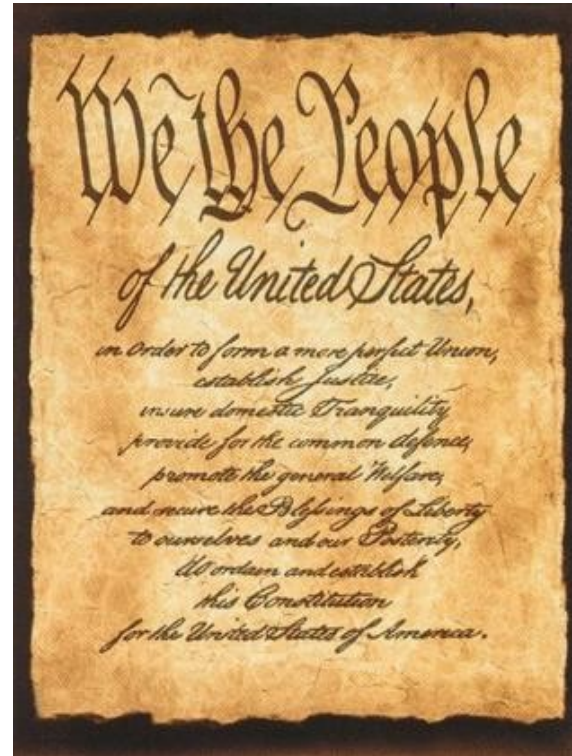 We the People
of the United States,
in Order to form a more perfect Union,
establish Justice,
insure domestic Tranquility
provide for the common defence,
promote the general Welfare,
and secure the Blessings of Liberty
to ourselves and our Posterity,
do ordain and establish
this Constitution
for the United States of America.